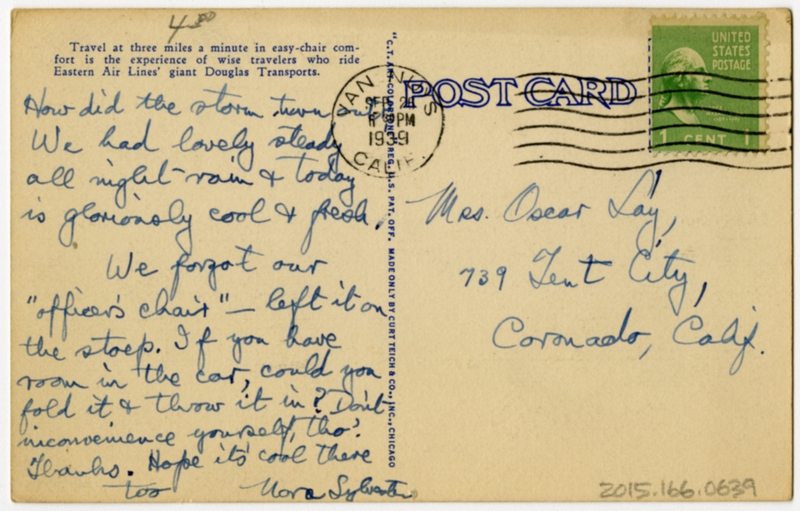 4.00
Travel at three miles a minute in easy-chair com-
fort is the experience of wise travelers who ride
Eastern Air Lines' giant Douglas Transports.
How did the storm turn out
We had lovely steady
all night rain & today
is gloriously cool & fresh.
We forgot our
"officer's chair" — left it on
the stoep. If you have
room in the car, could you
fold it & throw it in? Don't
inconvenience yourself, tho'.
Thanks. Hope it's cool there
too Nora Sylvester
"C.T. ART-COLORTONE" REG. U.S. PAT. OFF. MADE ONLY BY CURT TEICH & CO., INC., CHICAGO
POST CARD
VAN NUYS
SEP
PM
1939
CALIF.
UNITED
STATES
POSTAGE
1 CENT 1
Mrs. Oscar Lay,
739 Tent City,
Coronado, Calif.
2015.166.0639